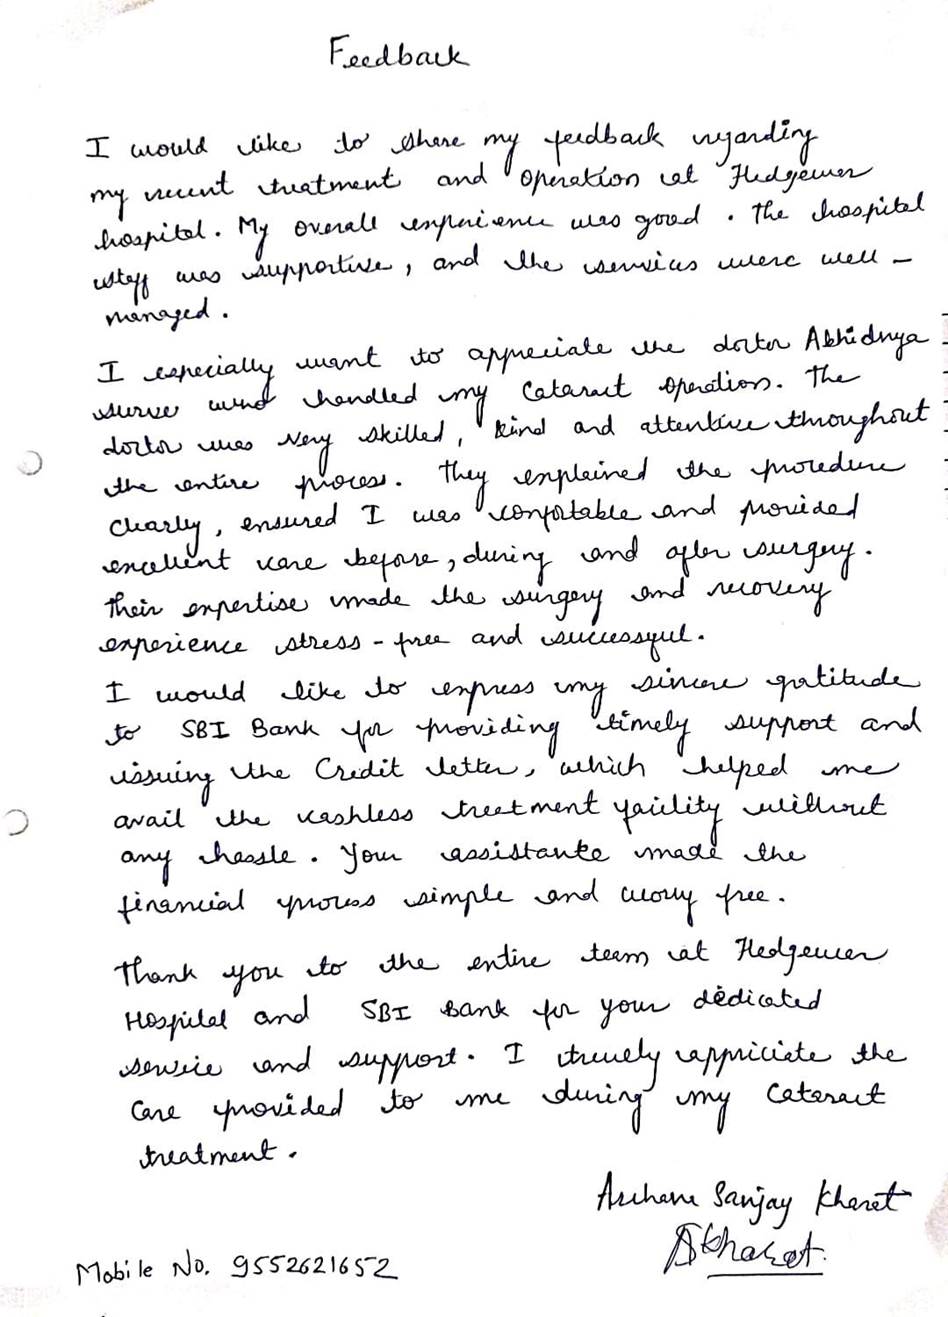 Feedback
I would like to share my feedback regarding
my recent treatment and operation at Hedgewar
hospital. My overall experience was good. The hospital
staff was supportive, and the services were well-
managed.
I especially want to appreciate the doctor Abhidnya
surve who handled my Cataract operation. The
doctor was very skilled, kind and attentive throughout
the entire process. They explained the procedure
clearly, ensured I was confortable and provided
excellent care before, during and after surgery.
Their expertise made the surgery and recovery
experience stress-free and successful.
I would like to express my sincere gratitude
to SBI Bank for providing timely support and
issuing the Credit letter, which helped me
avail the cashless treatment facility without
any hassle. Your assistance made the
financial process simple and worry free.
Thank you to the entire team at Hedgewar
Hospital and SBI Bank for your dedicated
service and support. I truely appriciate the
care provided to me during my Cataract
treatment.
Archana Sanjay Kharat
AKharat.
Mobile No. 9552621652